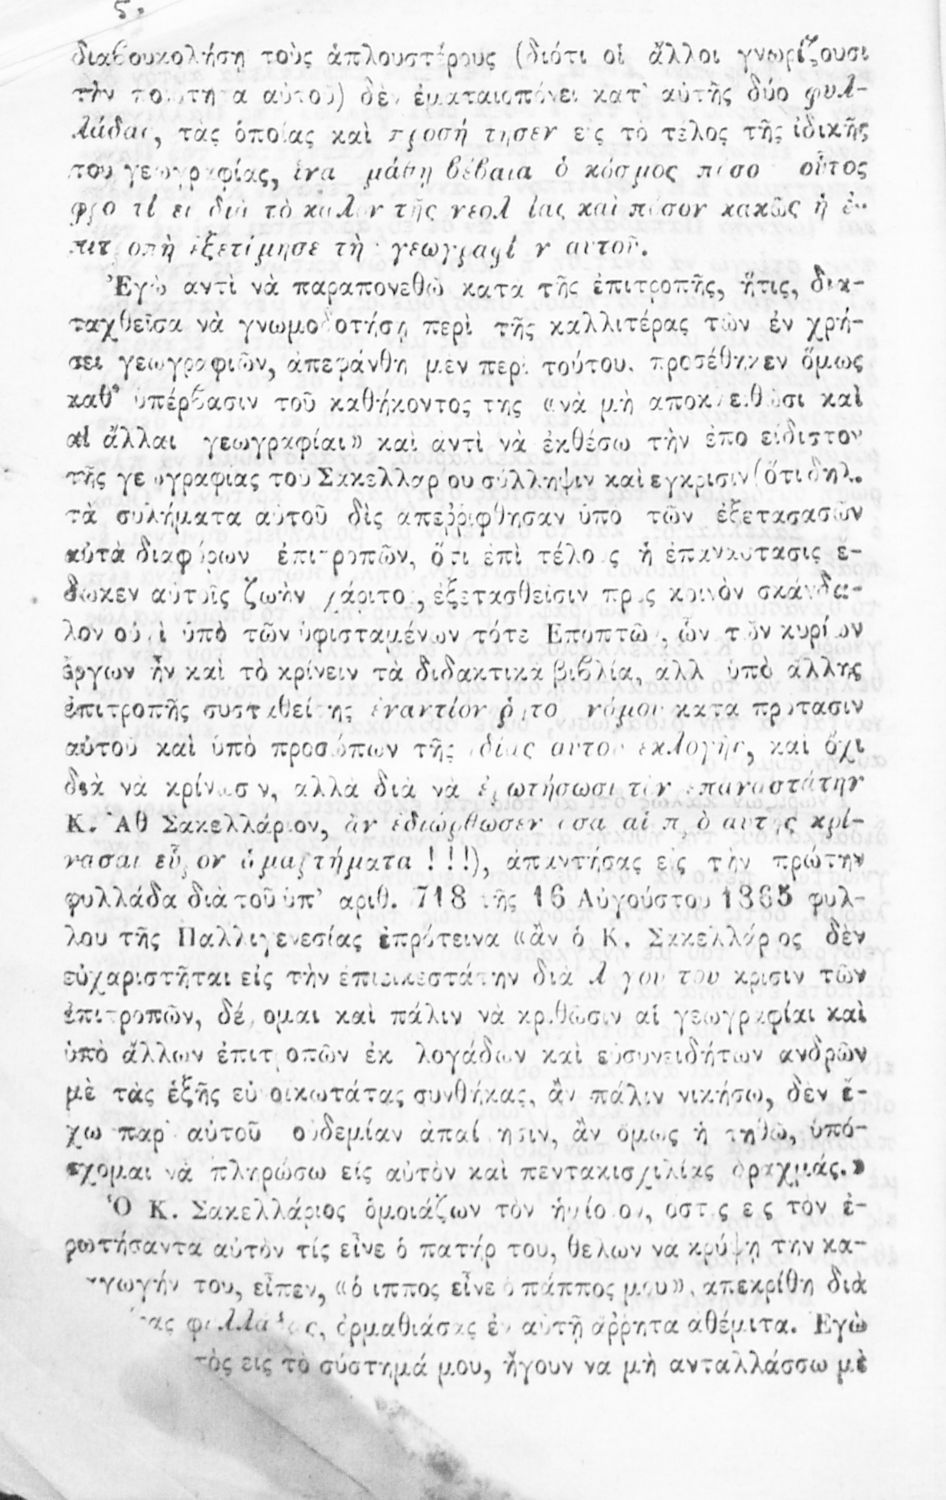 ϛ.
διαβουκολήσῃ τοὺς ἁπλουστέρους (διότι οἱ ἄλλοι γνωρίζουσι
τὴν ποιότητα αὐτοῦ) δὲν ἐματαιοπόνει κατ' αὐτῆς δύο φυλ-
λάδας, τὰς ὁποίας καὶ προσήρτησεν εἰς τὸ τέλος τῆς ἰδικῆς
του γεωγραφίας, ἵνα μάθῃ βέβαια ὁ κόσμος πόσον οὗτος
φροντίζει διὰ τὸ καλὸν τῆς νεολαίας καὶ πόσον κακῶς ἡ ἐ-
πιτροπὴ ἐξετίμησε τὴν γεωγραφίαν αὐτοῦ.
Ἐγὼ ἀντὶ νὰ παραπονεθῶ κατὰ τῆς ἐπιτροπῆς, ἥτις, δια-
ταχθεῖσα νὰ γνωμοδοτήσῃ περὶ τῆς καλλιτέρας τῶν ἐν χρή-
σει γεωγραφιῶν, ἀπεφάνθη μὲν περὶ τούτου, προσέθηκεν ὅμως
καθ' ὑπέρβασιν τοῦ καθήκοντός της «νὰ μὴ ἀποκλεισθῶσι καὶ
αἱ ἄλλαι γεωγραφίαι» καὶ ἀντὶ νὰ ἐκθέσω τὴν ἐπονείδιστον
τῆς γεωγραφίας τοῦ Σακελλαρίου σύλληψιν καὶ ἔγκρισιν (ὅτι δηλ.
τὰ συλήματα αὐτοῦ δὶς ἀπεῤῥίφθησαν ὑπὸ τῶν ἐξετασασῶν
αὐτὰ διαφόρων ἐπιτροπῶν, ὅτι ἐπὶ τέλους ἡ ἐπανάστασις ἔ-
δωκεν αὐτοῖς ζωὴν χάριτος, ἐξετασθεῖσιν πρὸς κοινὸν σκάνδα-
λον οὐχὶ ὑπὸ τῶν ὑφισταμένων τότε Ἐποπτῶν, ὧν τῶν κυρίων
ἔργων ἦν καὶ τὸ κρίνειν τὰ διδακτικὰ βιβλία, ἀλλ' ὑπὸ ἄλλης
ἐπιτροπῆς συσταθείσης ἐναντίον ῥητοῦ νόμου κατὰ πρότασιν
αὐτοῦ καὶ ὑπὸ προσώπων τῆς ἰδίας αὐτοῦ ἐκλογῆς, καὶ ὄχι
διὰ νὰ κρίνωσιν, ἀλλὰ διὰ νὰ ἐρωτήσωσι τὸν ἐπαναστάτην
Κ. Ἀθ Σακελλάριον, ἂν ἐδιώρθωσεν ὅσα αἱ πρὸ αὐτῆς κρί-
νασαι εὗρον ἁμαρτήματα !!!), ἀπαντήσας εἰς τὴν πρώτην
φυλλάδα διὰ τοῦ ὑπ' ἀριθ. 718 τῆς 16 Αὐγούστου 1865 φύλ-
λου τῆς Παλλιγενεσίας ἐπρότεινα «ἂν ὁ Κ. Σακελλάριος δὲν
εὐχαριστῆται εἰς τὴν ἐπιεικεστάτην διὰ λόγον του κρίσιν τῶν
ἐπιτροπῶν, δέχομαι καὶ πάλιν νὰ κριθῶσιν αἱ γεωγραφίαι καὶ
ὑπὸ ἄλλων ἐπιτροπῶν ἐκ λογάδων καὶ εὐσυνειδήτων ἀνδρῶν
μὲ τὰς ἑξῆς εὐνοικωτάτας συνθήκας, ἂν πάλιν νικήσω, δὲν ἔ-
χω παρ' αὐτοῦ οὐδεμίαν ἀπαίτησιν, ἂν ὅμως ἡττηθῶ, ὑπό-
σχομαι νὰ πληρώσω εἰς αὐτὸν καὶ πεντακισχιλίας δραχμάς.»
Ὁ Κ. Σακελλάριος ὁμοιάζων τὸν ἡμίονον, ὅστις εἰς τὸν ἐ-
ρωτήσαντα αὐτὸν τίς εἶνε ὁ πατήρ του, θέλων νὰ κρύψῃ τὴν κα-
γωγήν του, εἶπεν, «ὁ ἵππος εἶνε ὁ πάππος μου», ἀπεκρίθη διὰ
φυλλάδας, ὁρμαθιάσας ἐν αὐτῇ ἄῤῥητα ἀθέμιτα. Ἐγὼ
εἰς τὸ σύστημά μου, ἤγουν νὰ μὴ ἀνταλλάσσω μὲ